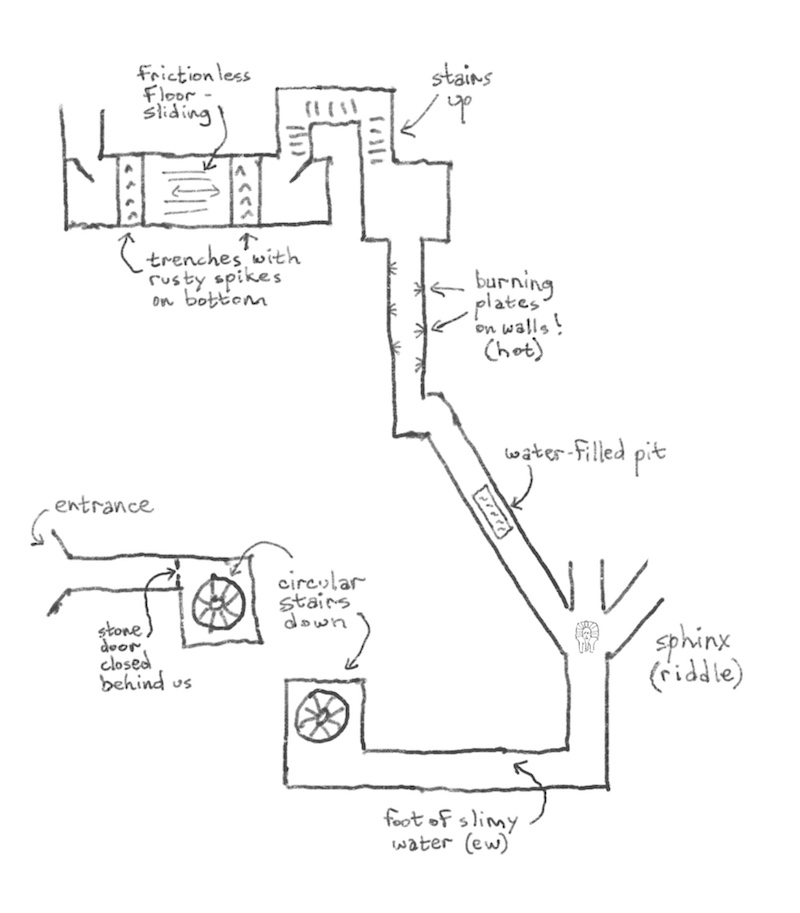 frictionless
floor -
sliding
stairs
up
trenches with
rusty spikes
on bottom
burning
plates
on walls!
(hot)
water-filled pit
entrance
circular
stairs
down
stone
door
closed
behind us
sphinx
(riddle)
foot of slimy
water (ew)